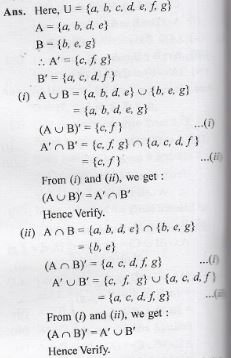 Ans. Here, U = {a, b, c, d, e, f, g}
A = {a, b, d, e}
B = {b, e, g}
∴ A' = {c, f, g}
B' = {a, c, d, f}
(i) A ∪ B = {a, b, d, e} ∪ {b, e, g}
= {a, b, d, e, g}
(A ∪ B)' = {c, f} ...(i)
A' ∩ B' = {c, f, g} ∩ {a, c, d, f}
= {c, f} ...(ii)
From (i) and (ii), we get :
(A ∪ B)' = A' ∩ B'
Hence Verify.
(ii) A ∩ B = {a, b, d, e} ∩ {b, e, g}
= {b, e}
(A ∩ B)' = {a, c, d, f, g} ...(i)
A' ∪ B' = {c, f, g} ∪ {a, c, d, f}
= {a, c, d, f, g} ...(ii)
From (i) and (ii), we get :
(A ∩ B)' = A' ∪ B'
Hence Verify.